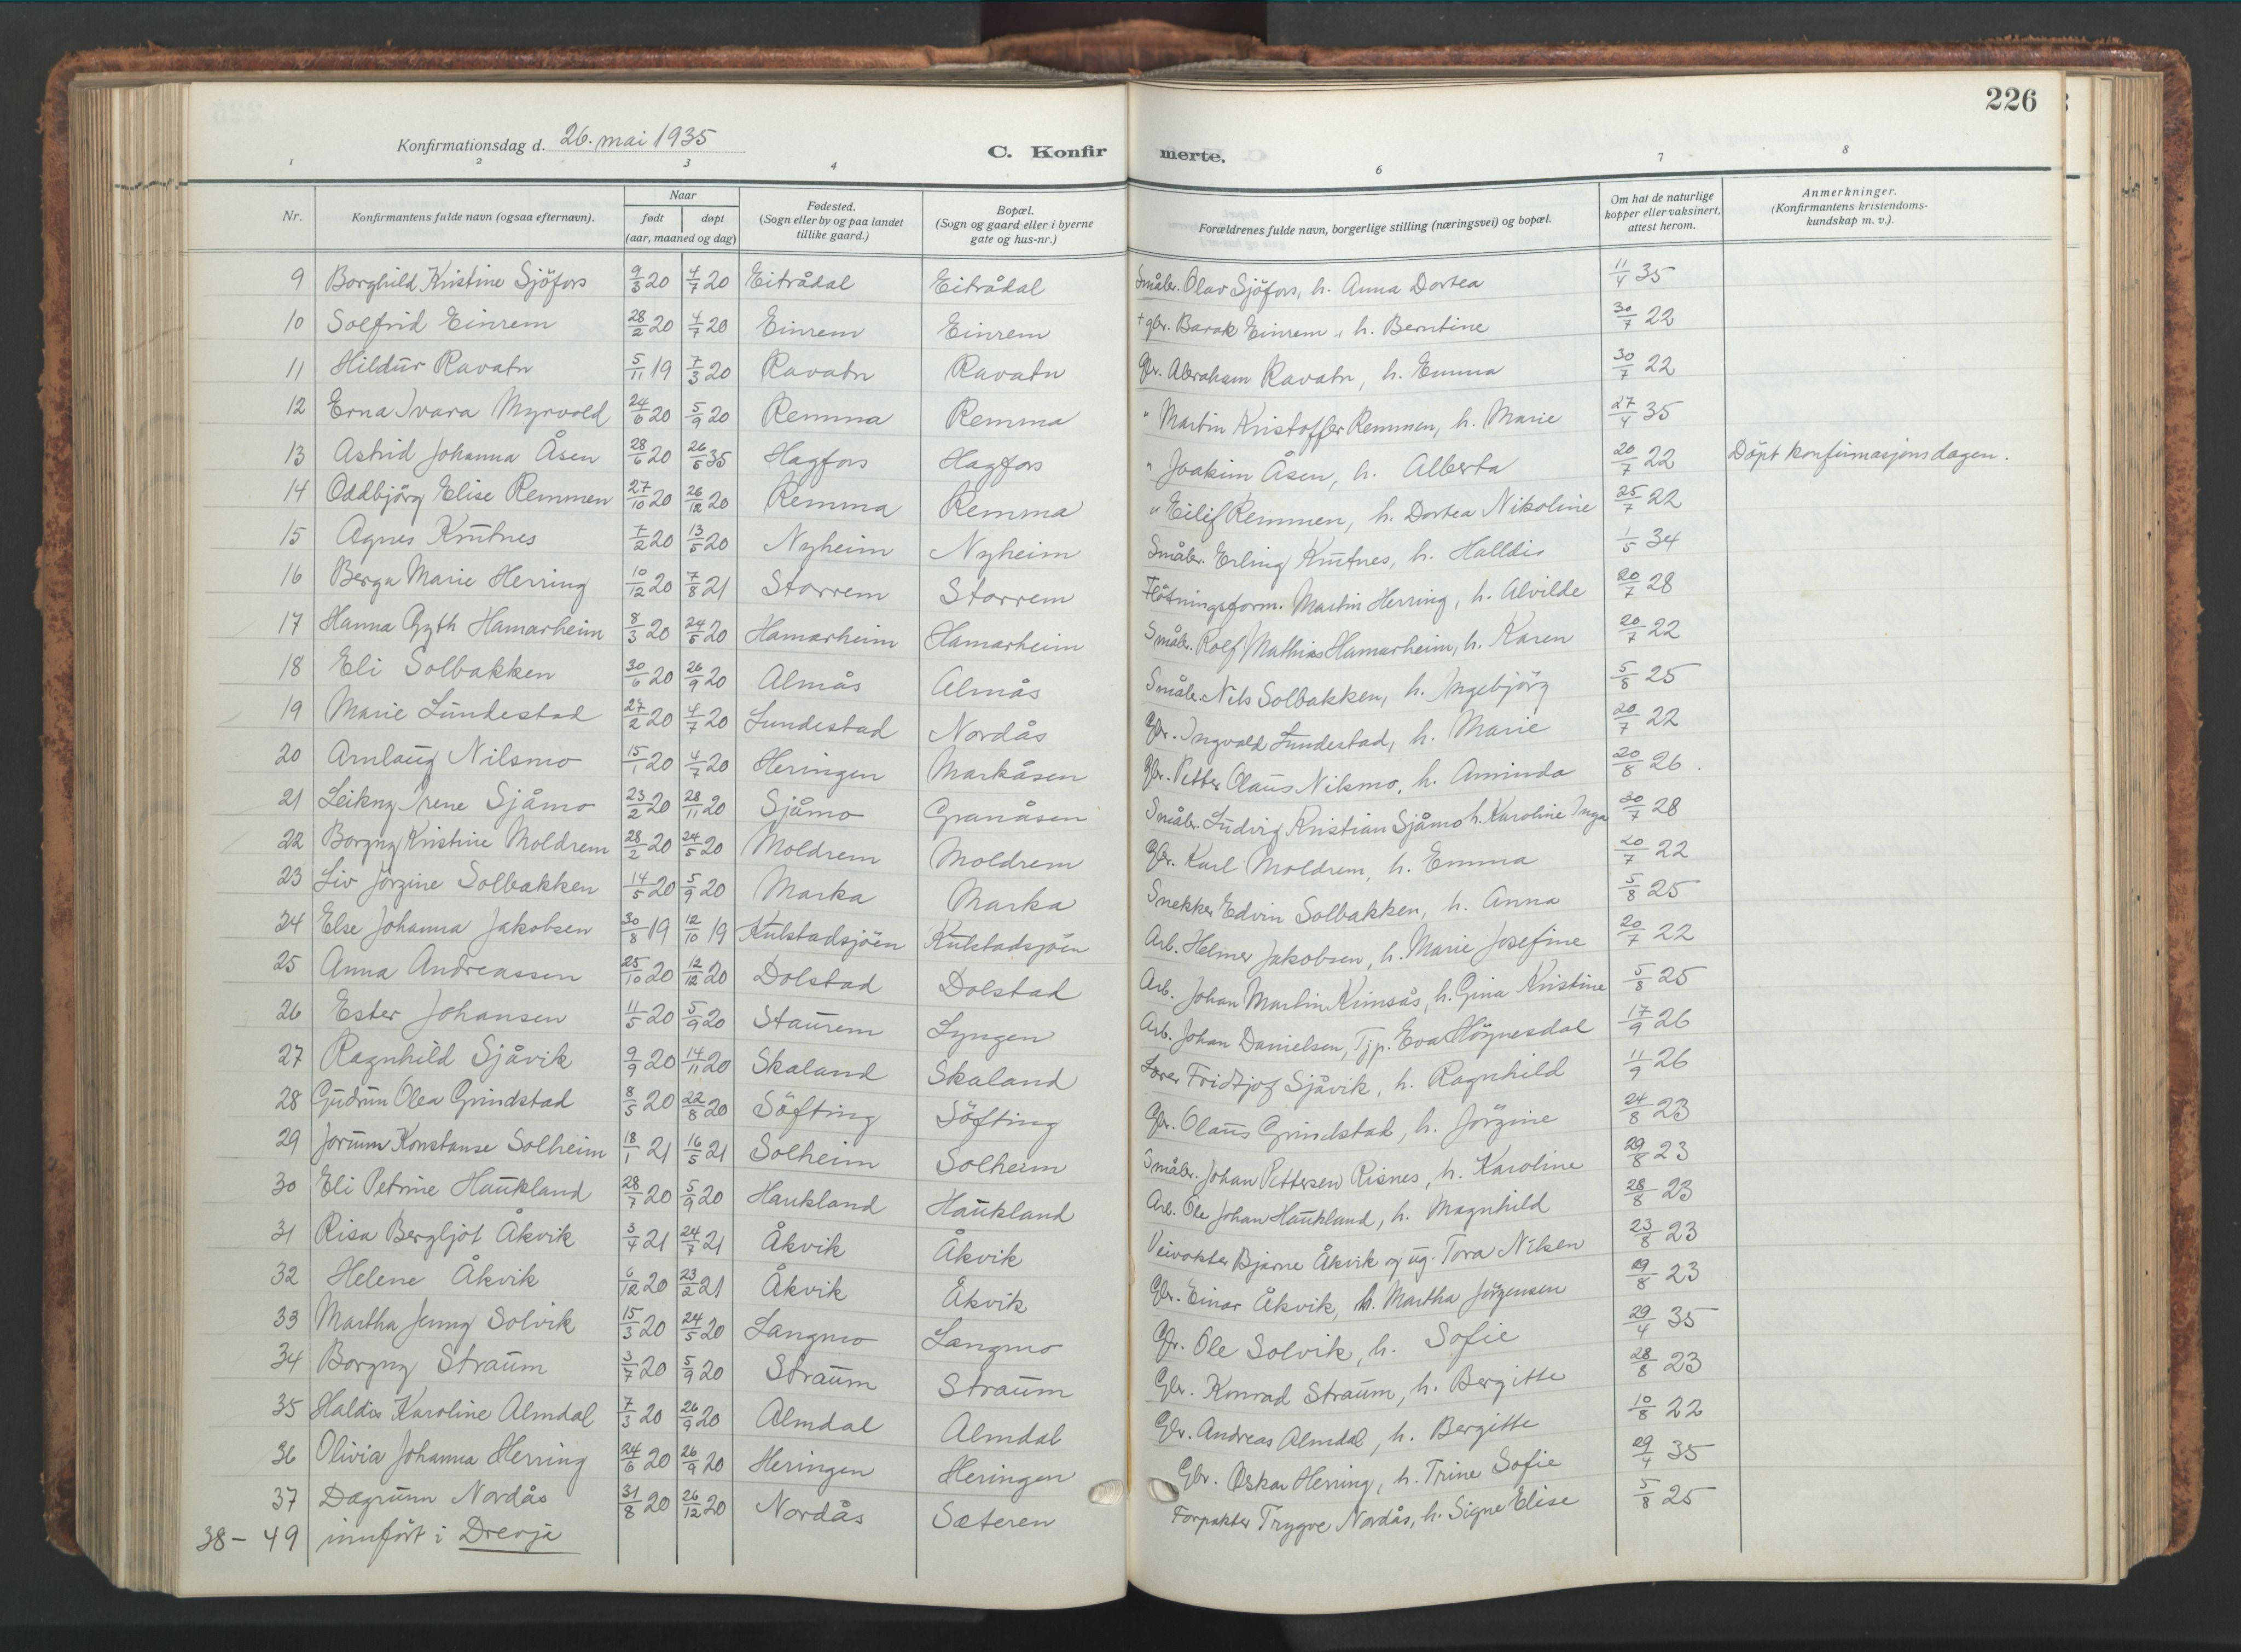 226
Konfirmationsdag d. 26. mai 1935
C. Konfirmerte.
1 2 3 4 6 7 8
Nr. | Konfirmantens fulde navn (ogsaa efternavn). | Naar født døpt (aar, maaned og dag) | Fødested. (Sogn eller by og paa landet tillike gaard.) | Bopæl. (Sogn og gaard eller i byerne gate og hus-nr.) | Forældrenes fulde navn, borgerlige stilling (næringsvei) og bopæl. | Om hat de naturlige kopper eller vaksinert, attest herom. | Anmerkninger. (Konfirmantens kristendomskundskap m. v.).
9 Borghild Kristine Sjöfors 9/3 20 4/7 20 Eitrådal Eitrådal Småbr. Olav Sjöfors, h. Anna Dortea 11/4 35
10 Solfrid Einrem 28/2 20 4/7 20 Einrem Einrem + gbr. Barak Einrem, h. Berntine 30/7 22
11 Hildur Ravatn 5/11 19 7/3 20 Ravatn Ravatn Gbr. Abraham Ravatn, h. Emma 30/7 22
12 Erna Ivara Myrvold 24/6 20 5/9 20 Remma Remma " Martin Kristoffer Remmen, h. Marie 27/4 35
13 Astrid Johanna Åsen 28/6 20 26/5 35 Hagfors Hagfors " Joakim Åsen, h. Alberta 20/7 22 Döpt konfirmasjonsdagen.
14 Oddbjörg Elise Remmen 27/10 20 26/12 20 Remma Remma " Eilif Remmen, h. Dortea Nikoline 25/7 22
15 Agnes Knutnes 7/2 20 13/5 20 Nyheim Nyheim Småbr. Erling Knutnes, h. Halldis 1/5 34
16 Berga Marie Herring 10/12 20 7/8 21 Storrem Storrem Flötningsform. Martin Herring, h. Alvilde 20/7 28
17 Hanna Gyth Hamarheim 8/3 20 24/5 20 Hamarheim Hamarheim Småbr. Rolf Mathias Hamarheim, h. Karen 20/7 22
18 Eli Solbakken 30/6 20 26/9 20 Almås Almås Småbr. Nils Solbakken, h. Ingebjörg 5/8 25
19 Marie Lundestad 27/2 20 4/7 20 Lundestad Nordås Gbr. Ingvald Lundestad, h. Marie 20/7 22
20 Arnlaug Nilsmo 15/1 20 4/7 20 Heringen Markåsen Gbr. Petter Olaus Nilsmo, h. Aminda 20/8 26.
21 Leikny Irene Sjåmo 23/2 20 28/11 20 Sjåmo Granåsen Småbr. Ludvig Kristian Sjåmo h. Karoline Inga 30/7 28
22 Borgny Kristine Moldrem 28/2 20 24/5 20 Moldrem Moldrem Gbr. Karl Moldrem, h. Emma 20/7 22
23 Liv Jörgine Solbakken 14/5 20 5/9 20 Marka Marka Snekker Edvin Solbakken, h. Anna 5/8 25
24 Else Johanna Jakobsen 30/8 19 12/10 19 Kulstadsjöen Kulstadsjöen Arb. Helmer Jakobsen, h. Marie Josefine 20/7 22
25 Anna Andreassen 25/10 20 12/12 20 Dolstad Dolstad Arb. Johan Martin Kimsås, h. Gina Kristine 5/8 25
26 Ester Johansen 11/5 20 5/9 20 Staurem Lyngen Arb. Johan Danielsen, Tjp. Eva Höynesdal 17/9 26
27 Ragnhild Sjåvik 9/9 20 14/11 20 Skaland Skaland Lærer Fridtjof Sjåvik, h. Ragnhild 11/9 26
28 Gudrun Olea Grindstad 8/5 20 22/8 20 Söfting Söfting Gbr. Olaus Grindstad, h. Jörgine 24/8 23
29 Jorunn Konstanse Solheim 18/1 21 16/5 21 Solheim Solheim Småbr. Johan Pettersen Risnes, h. Karoline 29/8 23
30 Eli Petrine Haukland 28/7 20 5/9 20 Haukland Haukland Arb. Ole Johan Haukland, h. Magnhild 28/8 23
31 Risa Bergljot Åkvik 3/4 21 24/7 21 Åkvik Åkvik Veivokter Bjarne Åkvik og ug. Tora Nilsen 23/8 23
32 Helene Åkvik 6/12 20 23/2 21 Åkvik Åkvik Gbr. Einar Åkvik, h. Martha Jörgensen 29/8 23
33 Martha Jenny Solvik 15/3 20 24/5 20 Langmo Langmo Gbr. Ole Solvik, h. Sofie 29/4 35
34 Borgny Straum 3/7 20 5/9 20 Straum Straum Gbr. Konrad Straum, h. Bergitte 28/8 23
35 Haldis Karoline Almdal 7/3 20 26/9 20 Almdal Almdal Gbr. Andreas Almdal, h. Bergitte 10/8 22
36 Olivia Johanna Herring 24/6 20 26/9 20 Heringen Heringen Gbr. Oskar Herring, h. Trine Sofie 29/4 35
37 Dagrunn Nordås 31/8 20 26/12 20 Nordås Sæteren Forpakter Trygve Nordås, h. Signe Elise 5/8 25
38 - 49 innfört i Drevja